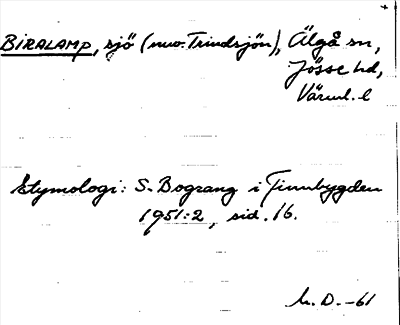 BIRALAMP, sjö (nuv. Trindsjön), Älgå sn,
Jösse hd,
Värml. l
Etymologi: S. Bograng i Finnbygden
1951:2, sid. 16.
M. D. -61